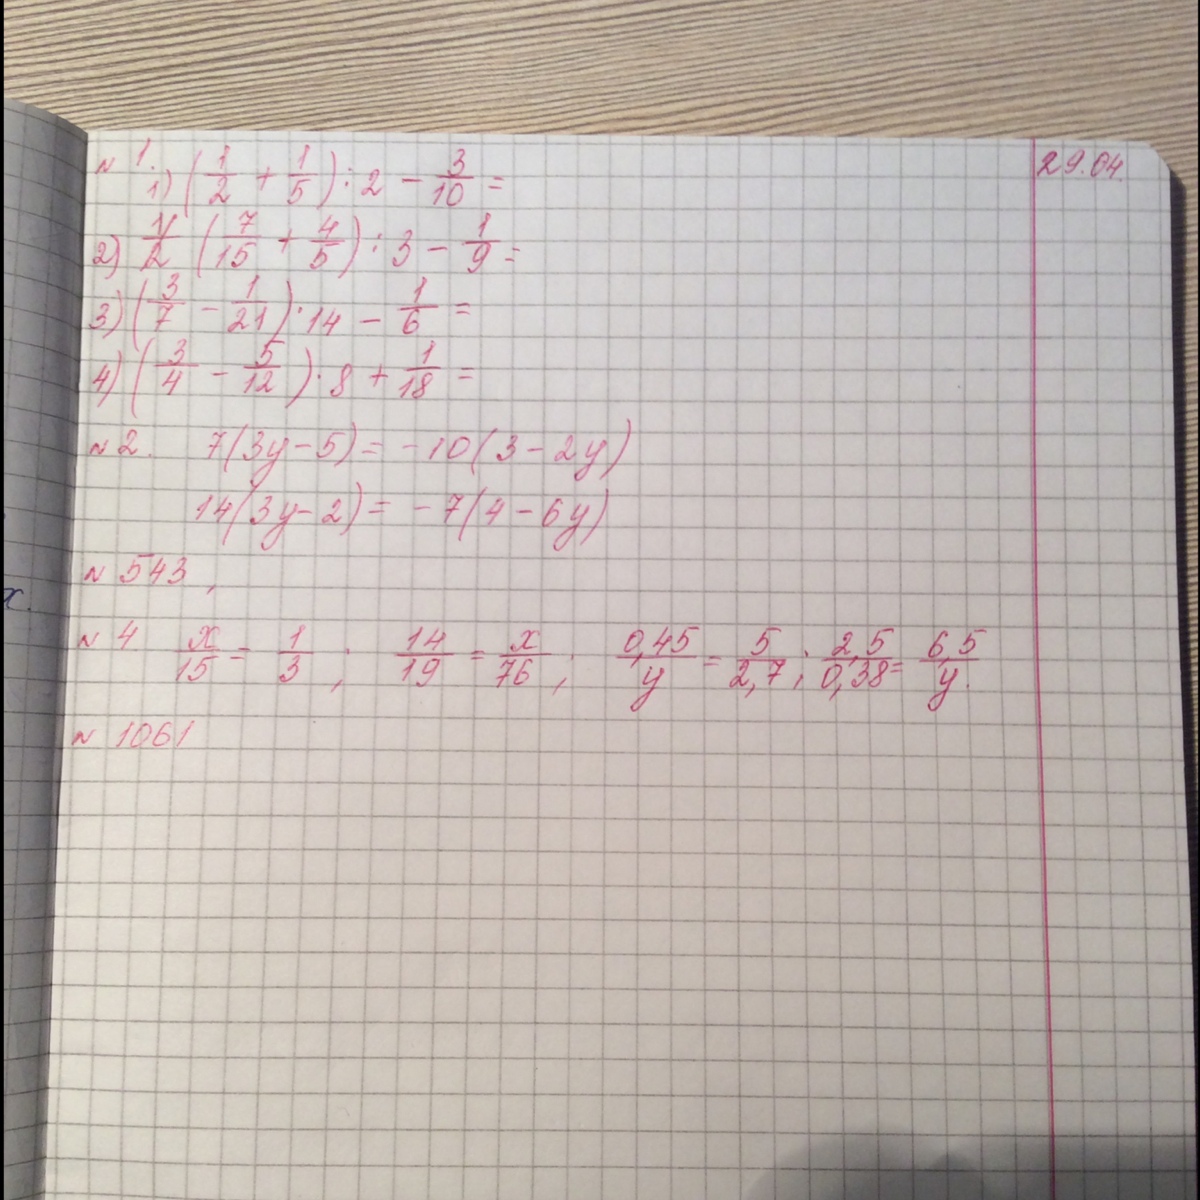 29.04.
№ 1.
1) (1/2 + 1/5) : 2 − 3/10 =
2) (7/15 + 4/5) : 3 − 1/9 =
3) (3/7 − 1/21) · 14 − 1/6 =
4) (3/4 − 5/12) · 8 + 1/18 =
№ 2. 7(3y − 5) = −10(3 − 2y)
14(3y − 2) = −7(4 − 6y)
№ 543,
№ 4 x/15 = 1/3 ; 14/19 = x/76 ; 0,45/y = 5/2,7 ; 2,5/0,38 = 6,5/y.
№ 1061
x.